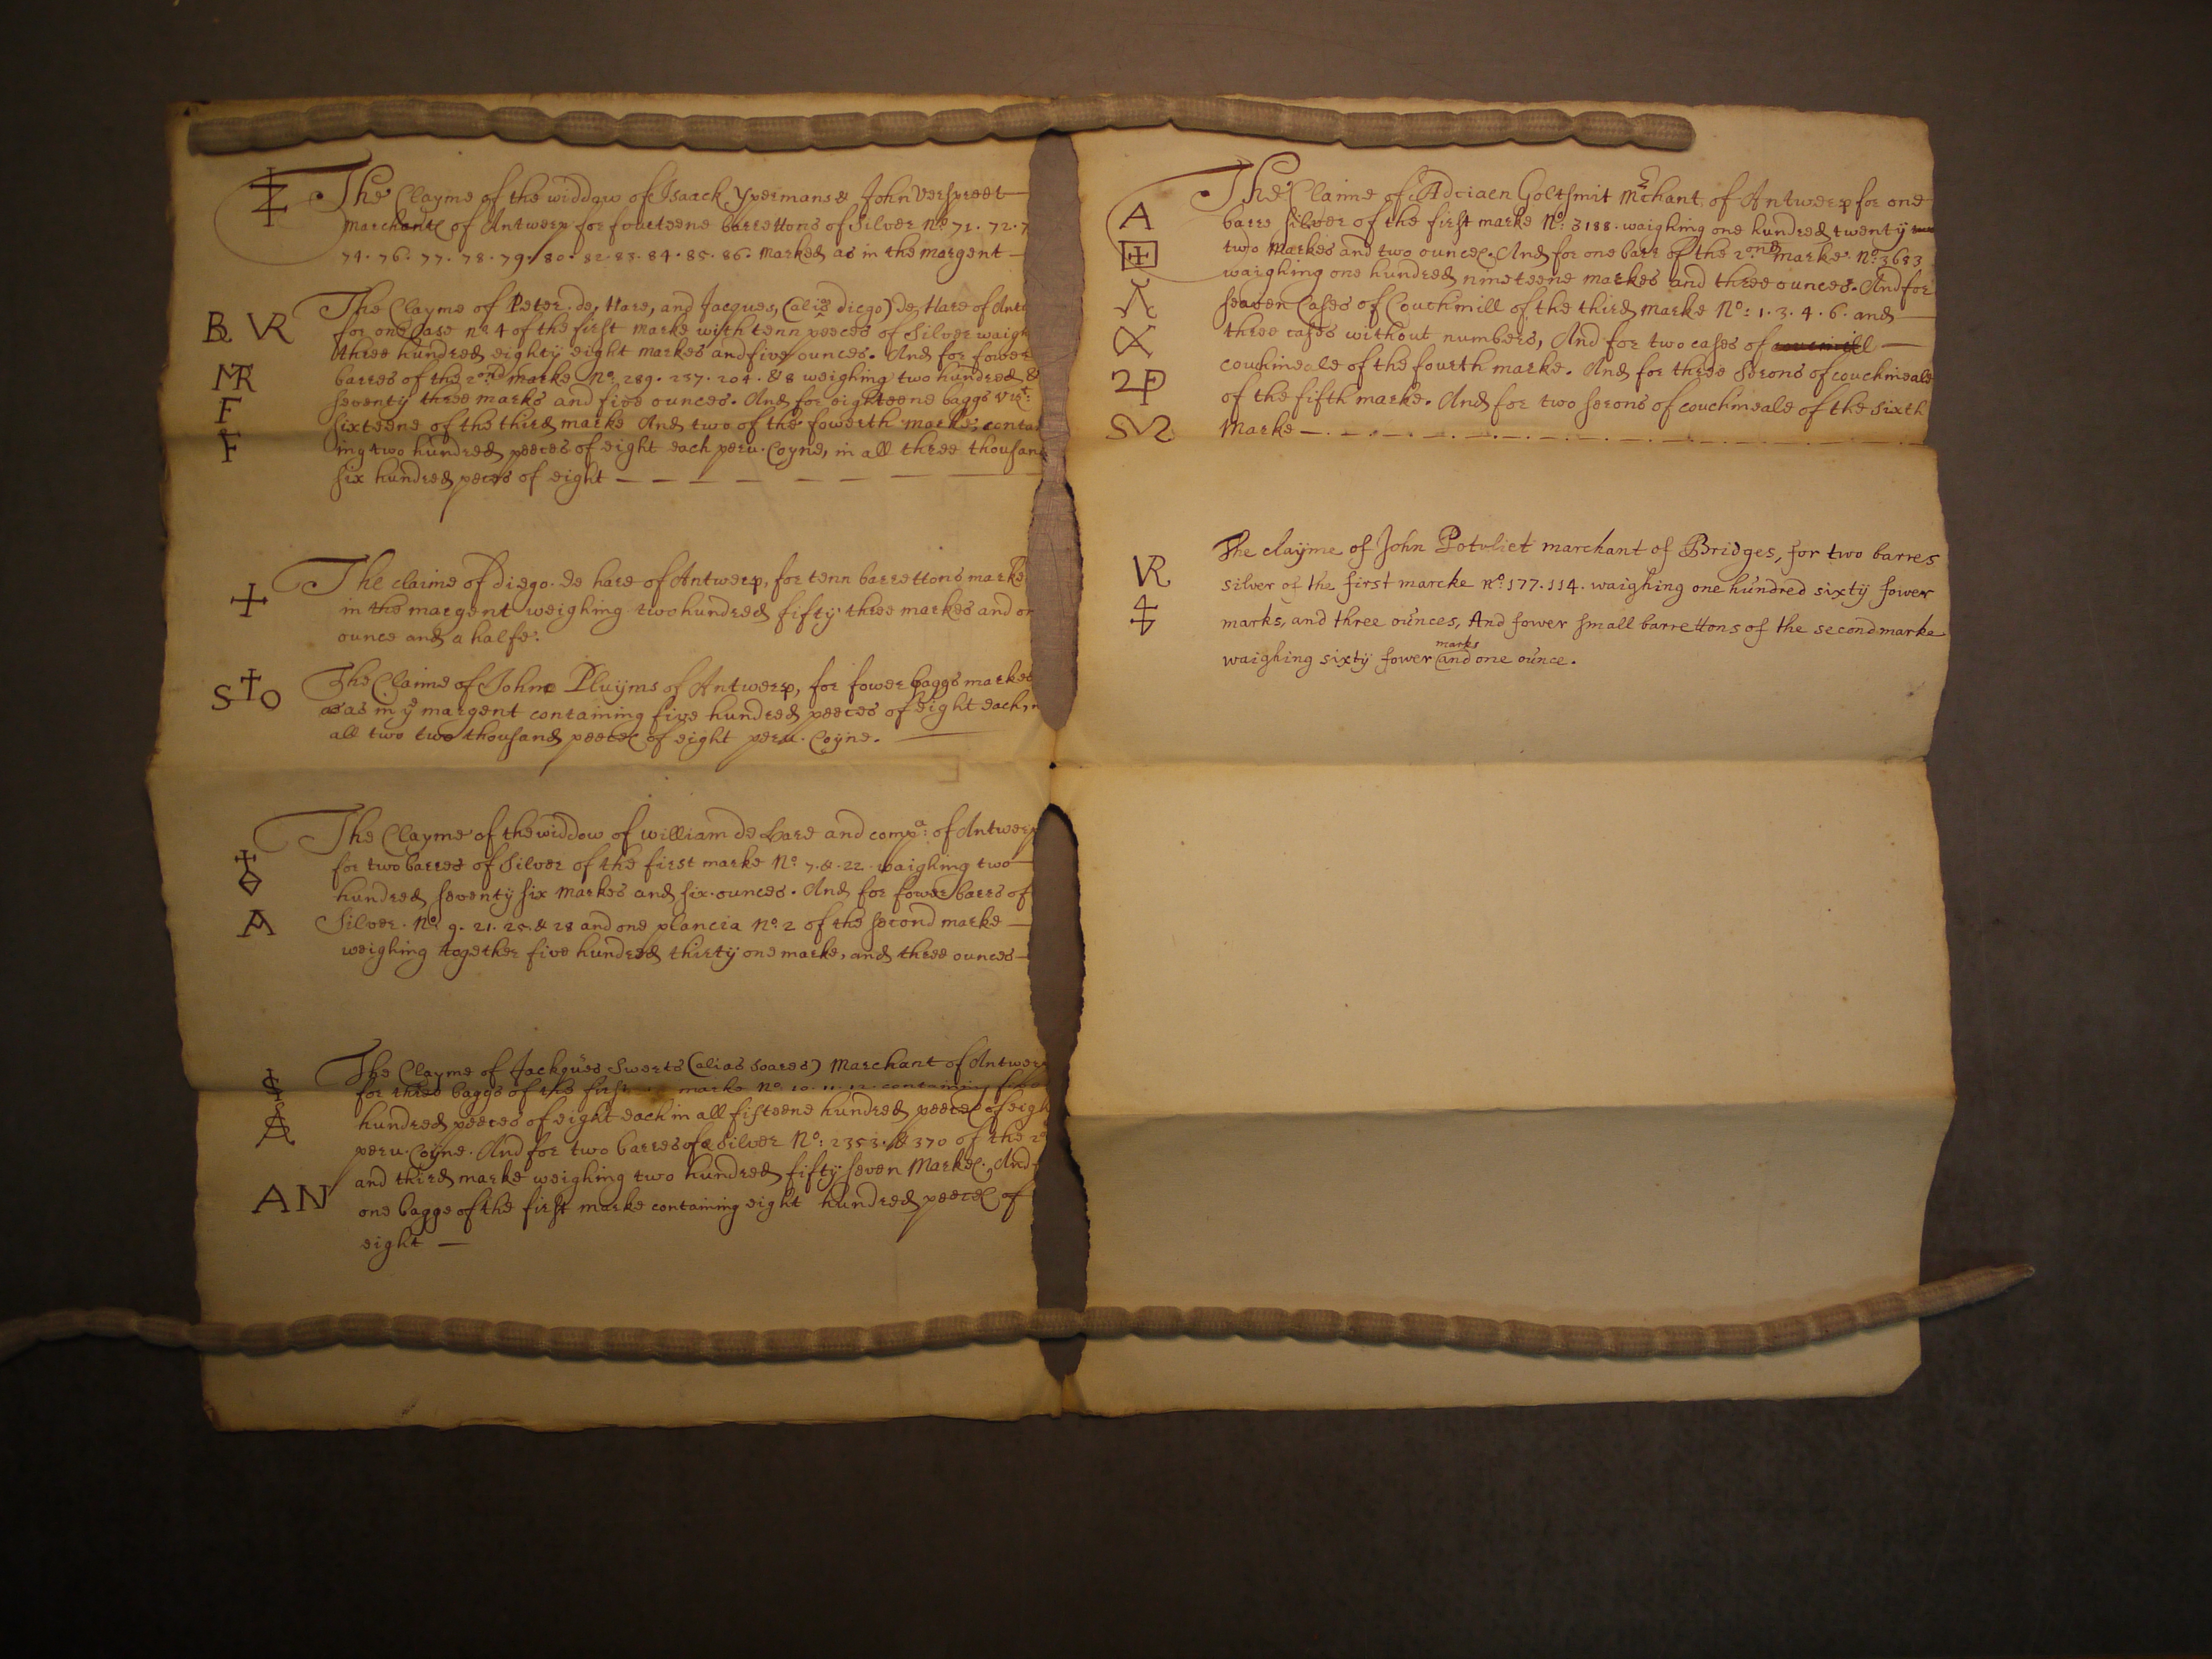 The Clayme of the widdow of Isaack Ypermans & John Verspreet
marchants of Antwerp for fourteene barrettons of Silver No 71. 72. 7
74. 76. 77. 78. 79. 80. 82. 83. 84. 85. 86. Marked as in the margent
The Clayme of Peter de Hare, and Jacques, (alis diego) de Hare of Antw
B VR
for one Case no 4 of the first marke with tenn peeces of Silver waigh
three hundred eighty eight markes and five ounces. And for fower
MR
barres of the 2ond marke No: 289. 237. 204. & 8 weighing two hundred &
F
seventy three marks and five ounces. And for eighteene baggs vizt:
sixteene of the third marke And two of the fowerth marke; contai
F
ing two hundred peeces of eight each peru. Coyne, in all three thousand
six hundred peeces of eight
The claime of Diego de hare of Antwerp, for tenn barrettons marked
in the margent weighing two hundred fifty three markes and on
ounce and a halfe.
The Claime of John Pluijms of Antwerp, for fower baggs marked
STO
as in ye margent containing five hundred peeces of eight each, in
all two two thousand peeces of eight peru. Coyne.
The Clayme of the widdow of william de Hare and compa: of Antwerp
for two barres of Silver of the first marke No 7. & 22 waighing two
hundred seventy six markes and six ounces. And for fower barrs of
A
Silver. No 9. 21. 25. & 28 and one plancia No 2 of the second marke
weighing together five hundred thirty one marke, and three ounces
The Clayme of Jackques Swerts (alias soares) Marchant of Antwerp
S
for three baggs of the first marke No 10. 11. 12. containing five
A
hundred peeces of eight each in all fifteene hundred peeces of eigh
peru. Coyne. And for two barres of Silver No: 2353. & 370 of the 2d
and third marke weighing two hundred fifty seven Markes. And f
AN
one bagge of the first marke containing eight hundred peeces of
eight
The Claime of Adriaen Goltsmit Mrchant of Antwerp for one
A
barre silver of the first marke No: 3188. waighing one hundred twenty
two Markes and two ounces. And for one barr of the 2ond marke No: 3683
waighing one hundred nineteene markes and three ounces. And for
seaven Cases of Couchmill of the third marke No: 1. 3. 4. 6. and
three cases without numbers, And for two cases of
2P
couchineale of the fourth marke. And for three Serons of couchineale
of the fifth marke. And for two serons of couchineale of the sixth
Marke
The clayme of John Potvliet marchant of Bridges, for two barres
VR
silver of the first marcke no: 177. 114. waighing one hundred sixty fower
marks, and three ounces, And fower small barrettons of the second marke
waighing sixty fower marks and one ounce.